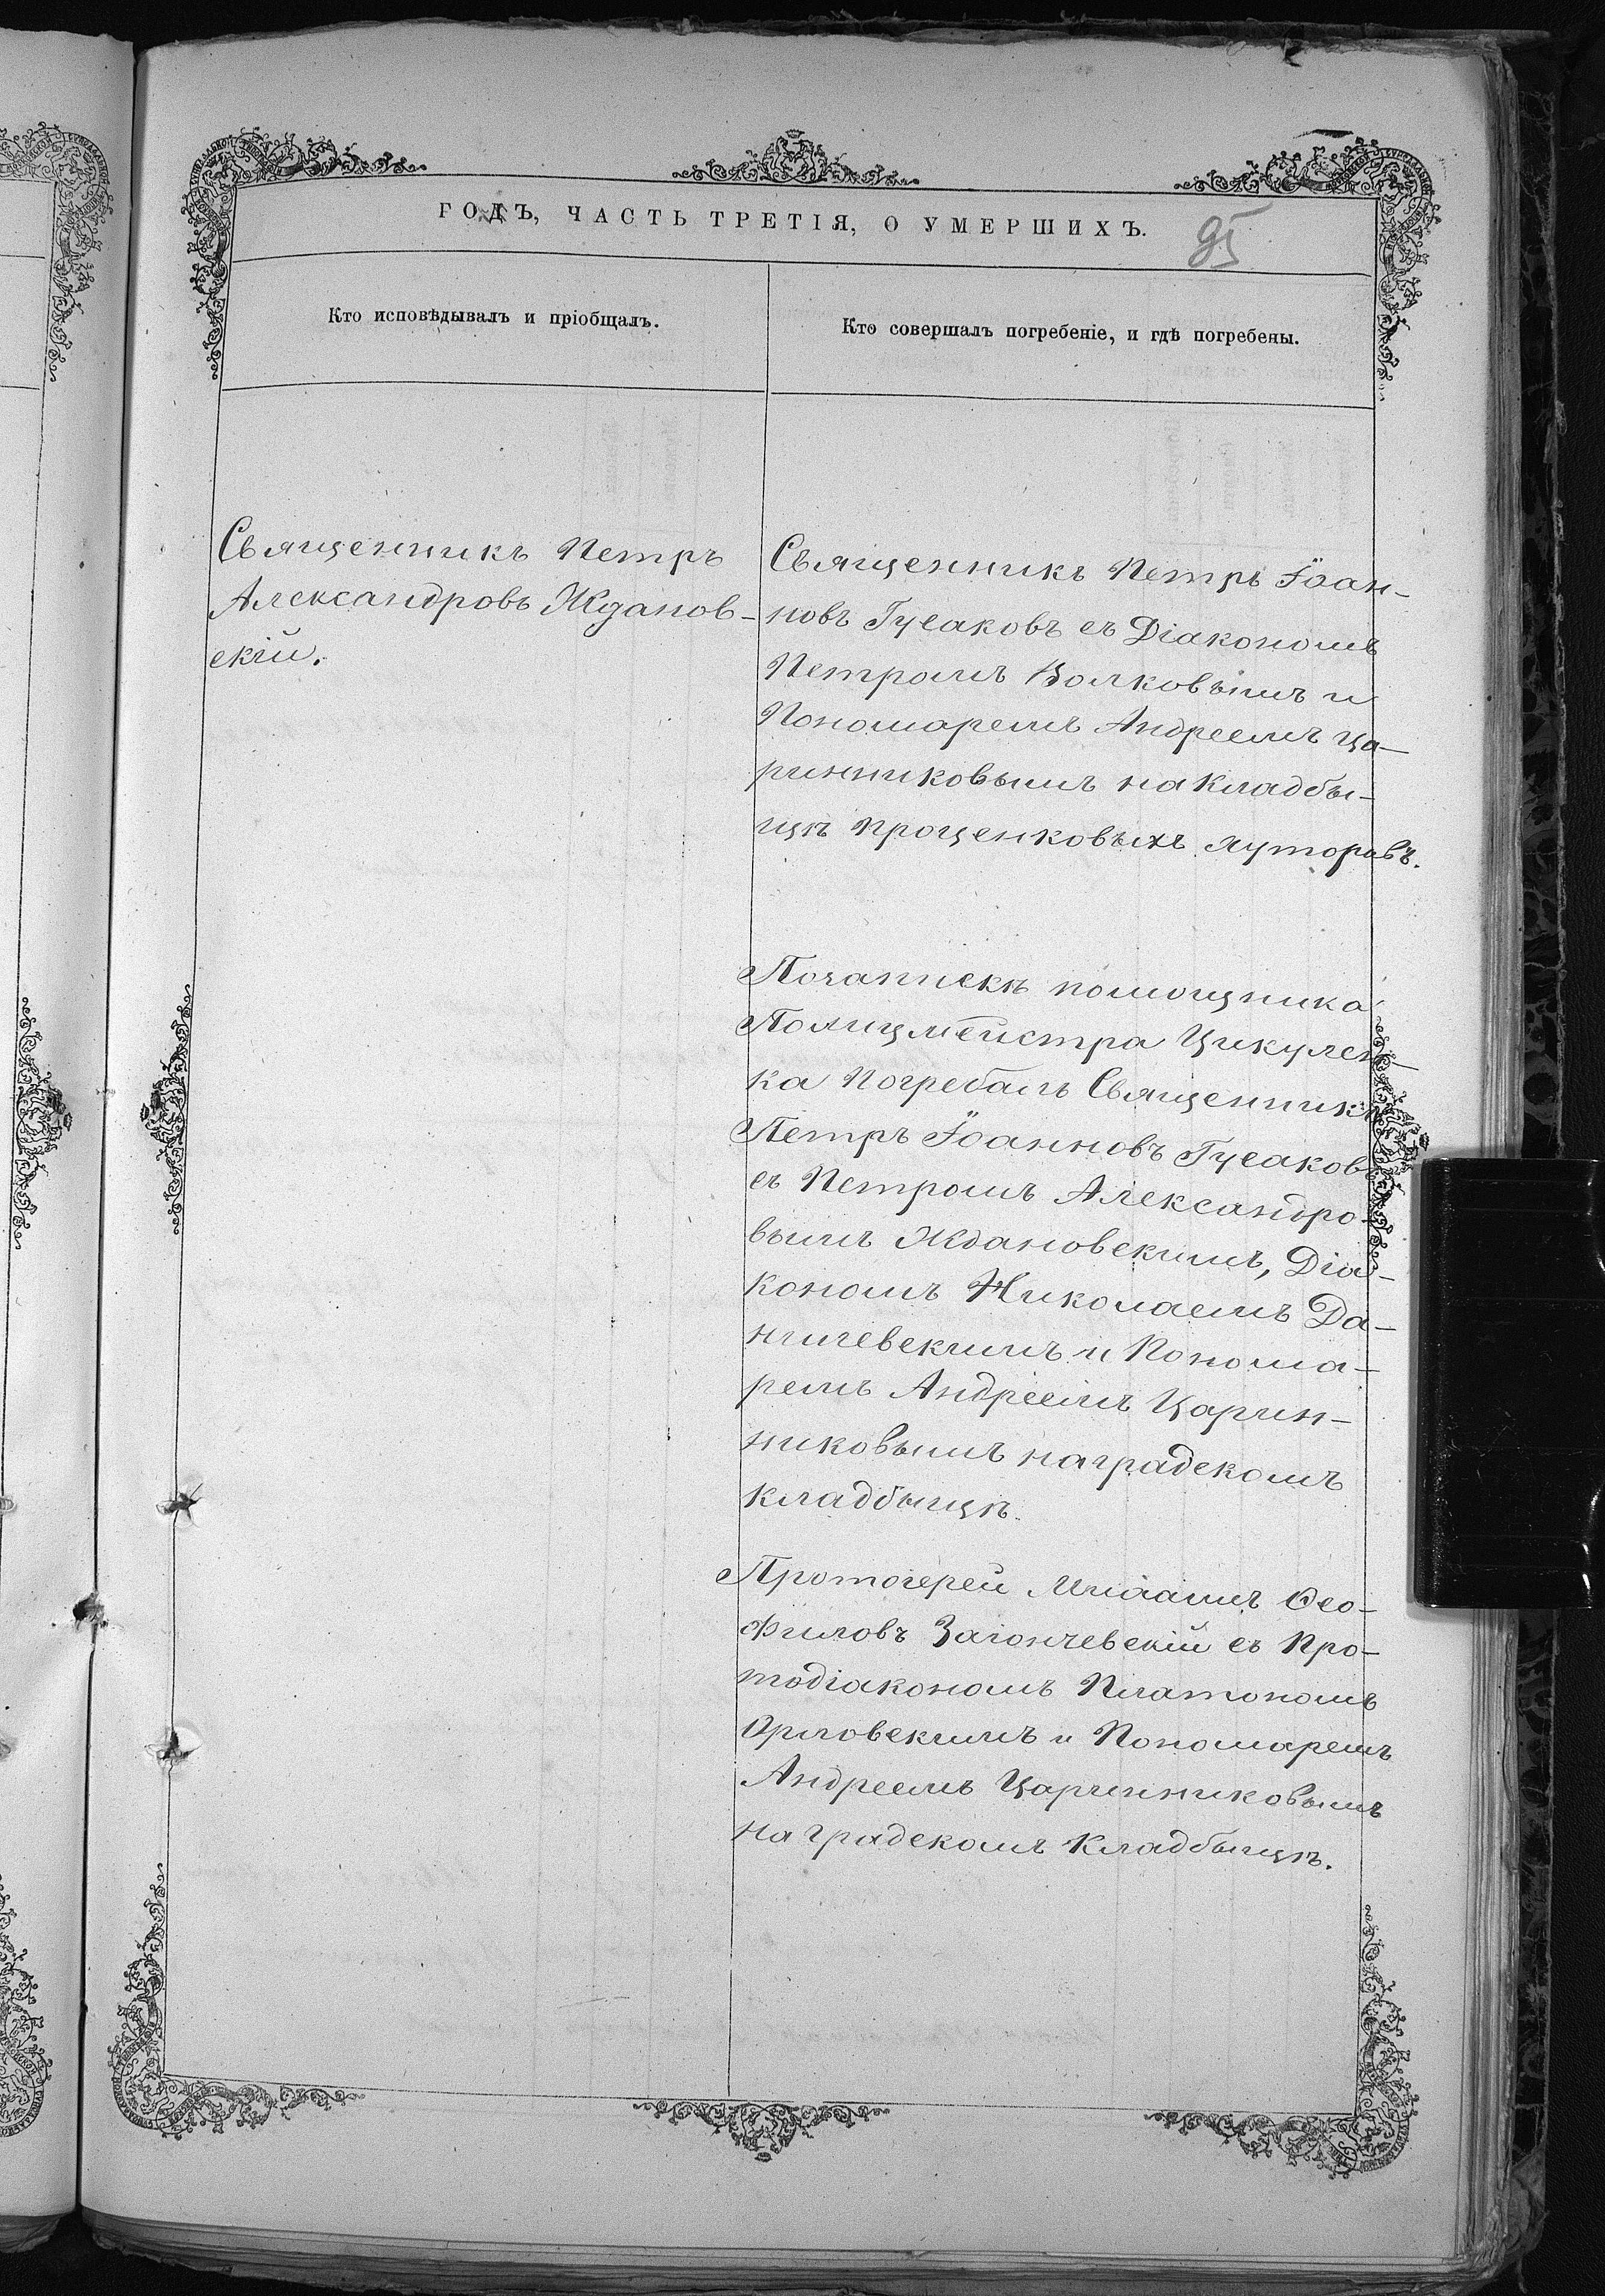 ГОДЪ, ЧАСТЬ ТРЕТІЯ, О УМЕРШИХЪ.
95
Кто исповѣдывалъ и пріобщалъ.
Кто совершалъ погребеніе, и гдѣ погребены.
Священникъ Петръ
Александровъ Жданов-
скій.
Священникъ Петръ Іоан-
новъ Гусаковъ съ Діакономъ
Петромъ Волковымъ и
Пономаремъ Андреемъ Ца-
ринниковымъ на кладбы-
щѣ Проценковыхъ хуторовъ.
По запискѣ помощника
Полицмейстра Цикулен-
ка погребалъ Священникъ
Петръ Іоанновъ Гусаковъ
съ Петромъ Александро-
вымъ Ждановскимъ, Діа-
кономъ Николаемъ Да-
ничевскимъ и Понома-
ремъ Андреемъ Царин-
никовымъ на градскомъ
кладбыщѣ.
Протоіерей Ѳео-
филовъ съ Про-
тодіакономъ Платономъ
Орловскимъ и Пономаремъ
Андреемъ Царинниковымъ
на градскомъ кладбыщѣ.